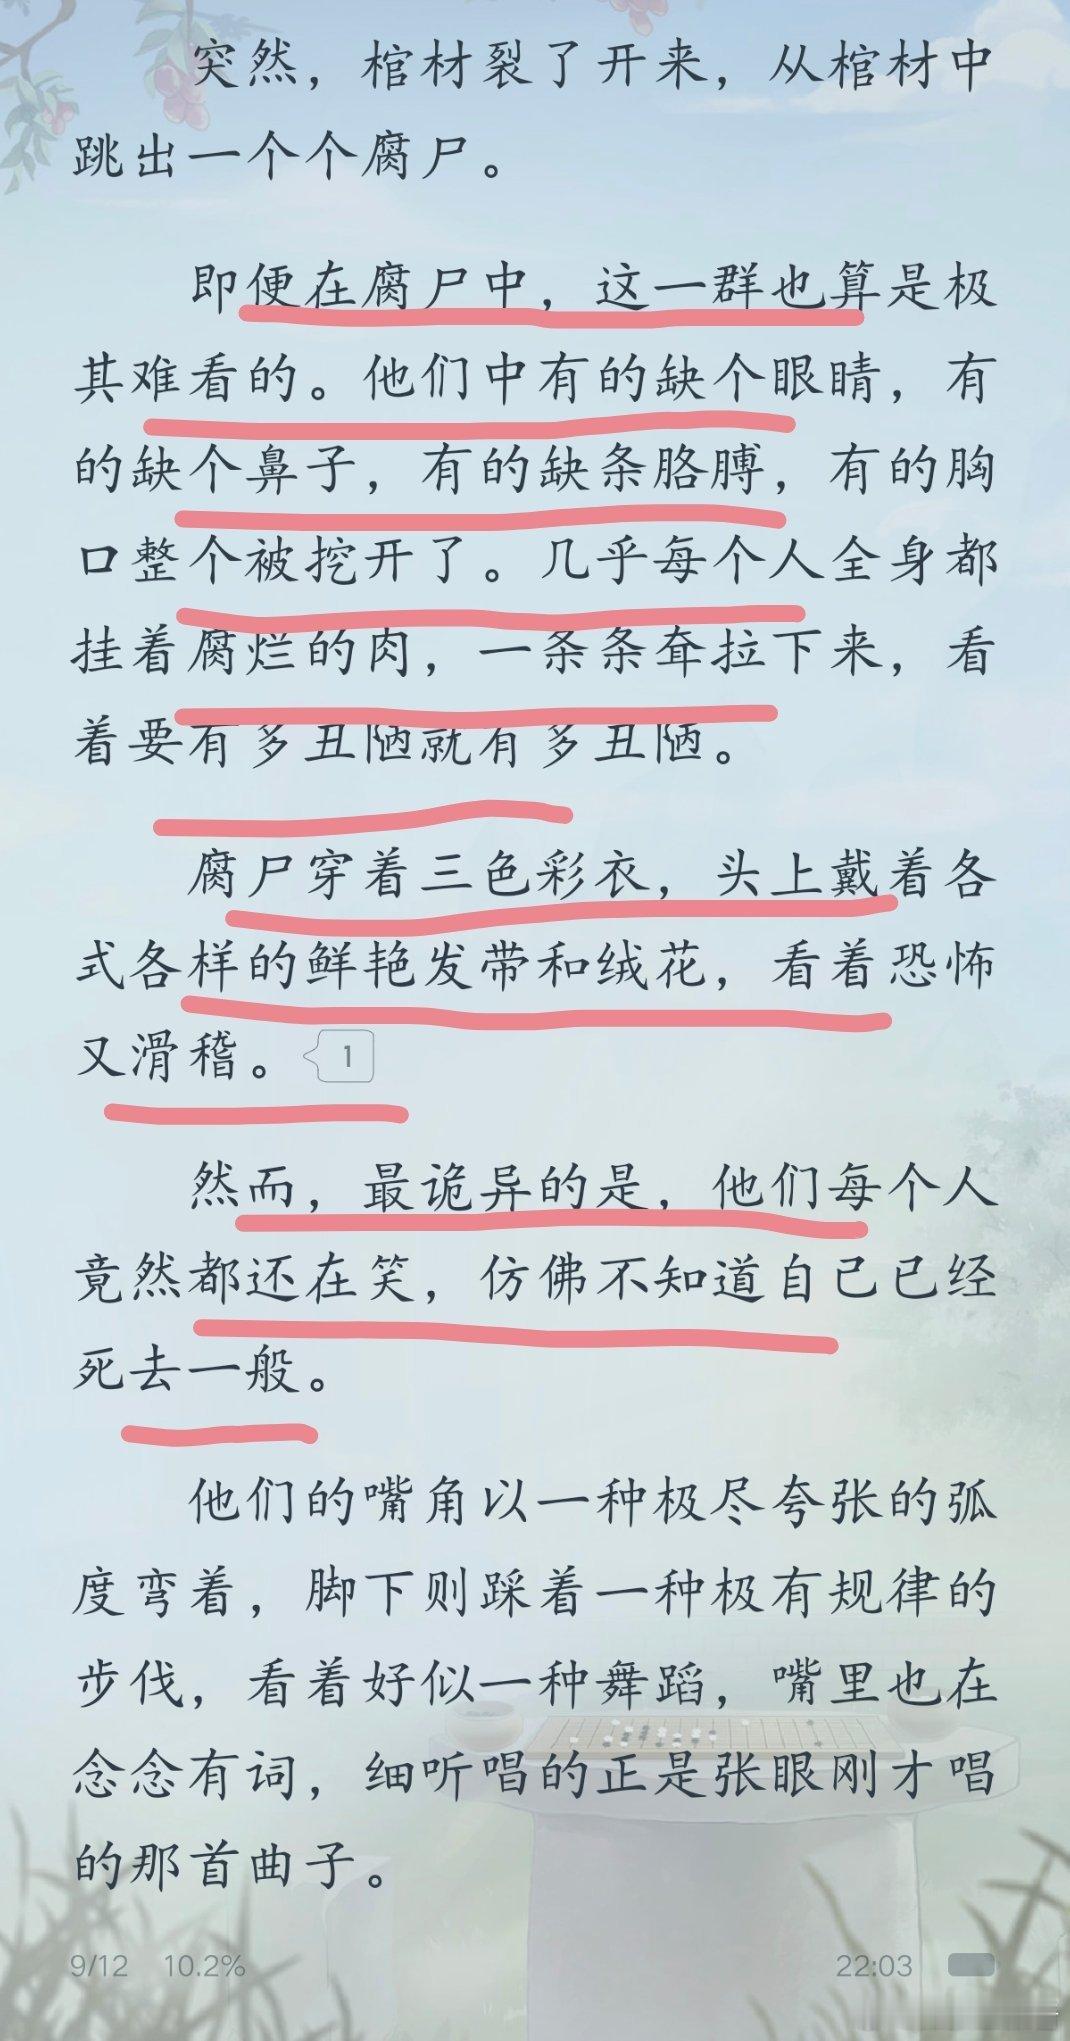 突然，棺材裂了开来，从棺材中
跳出一个个腐尸。
即便在腐尸中，这一群也算是极
其难看的。他们中有的缺个眼睛，有
的缺个鼻子，有的缺条胳膊，有的胸
口整个被挖开了。几乎每个人全身都
挂着腐烂的肉，一条条耷拉下来，看
着要有多丑陋就有多丑陋。
腐尸穿着三色彩衣，头上戴着各
式各样的鲜艳发带和绒花，看着恐怖
又滑稽。 1
然而，最诡异的是，他们每个人
竟然都还在笑，仿佛不知道自己已经
死去一般。
他们的嘴角以一种极尽夸张的弧
度弯着，脚下则踩着一种极有规律的
步伐，看着好似一种舞蹈，嘴里也在
念念有词，细听唱的正是张眼刚才唱
的那首曲子。
9/12 10.2% 22:03